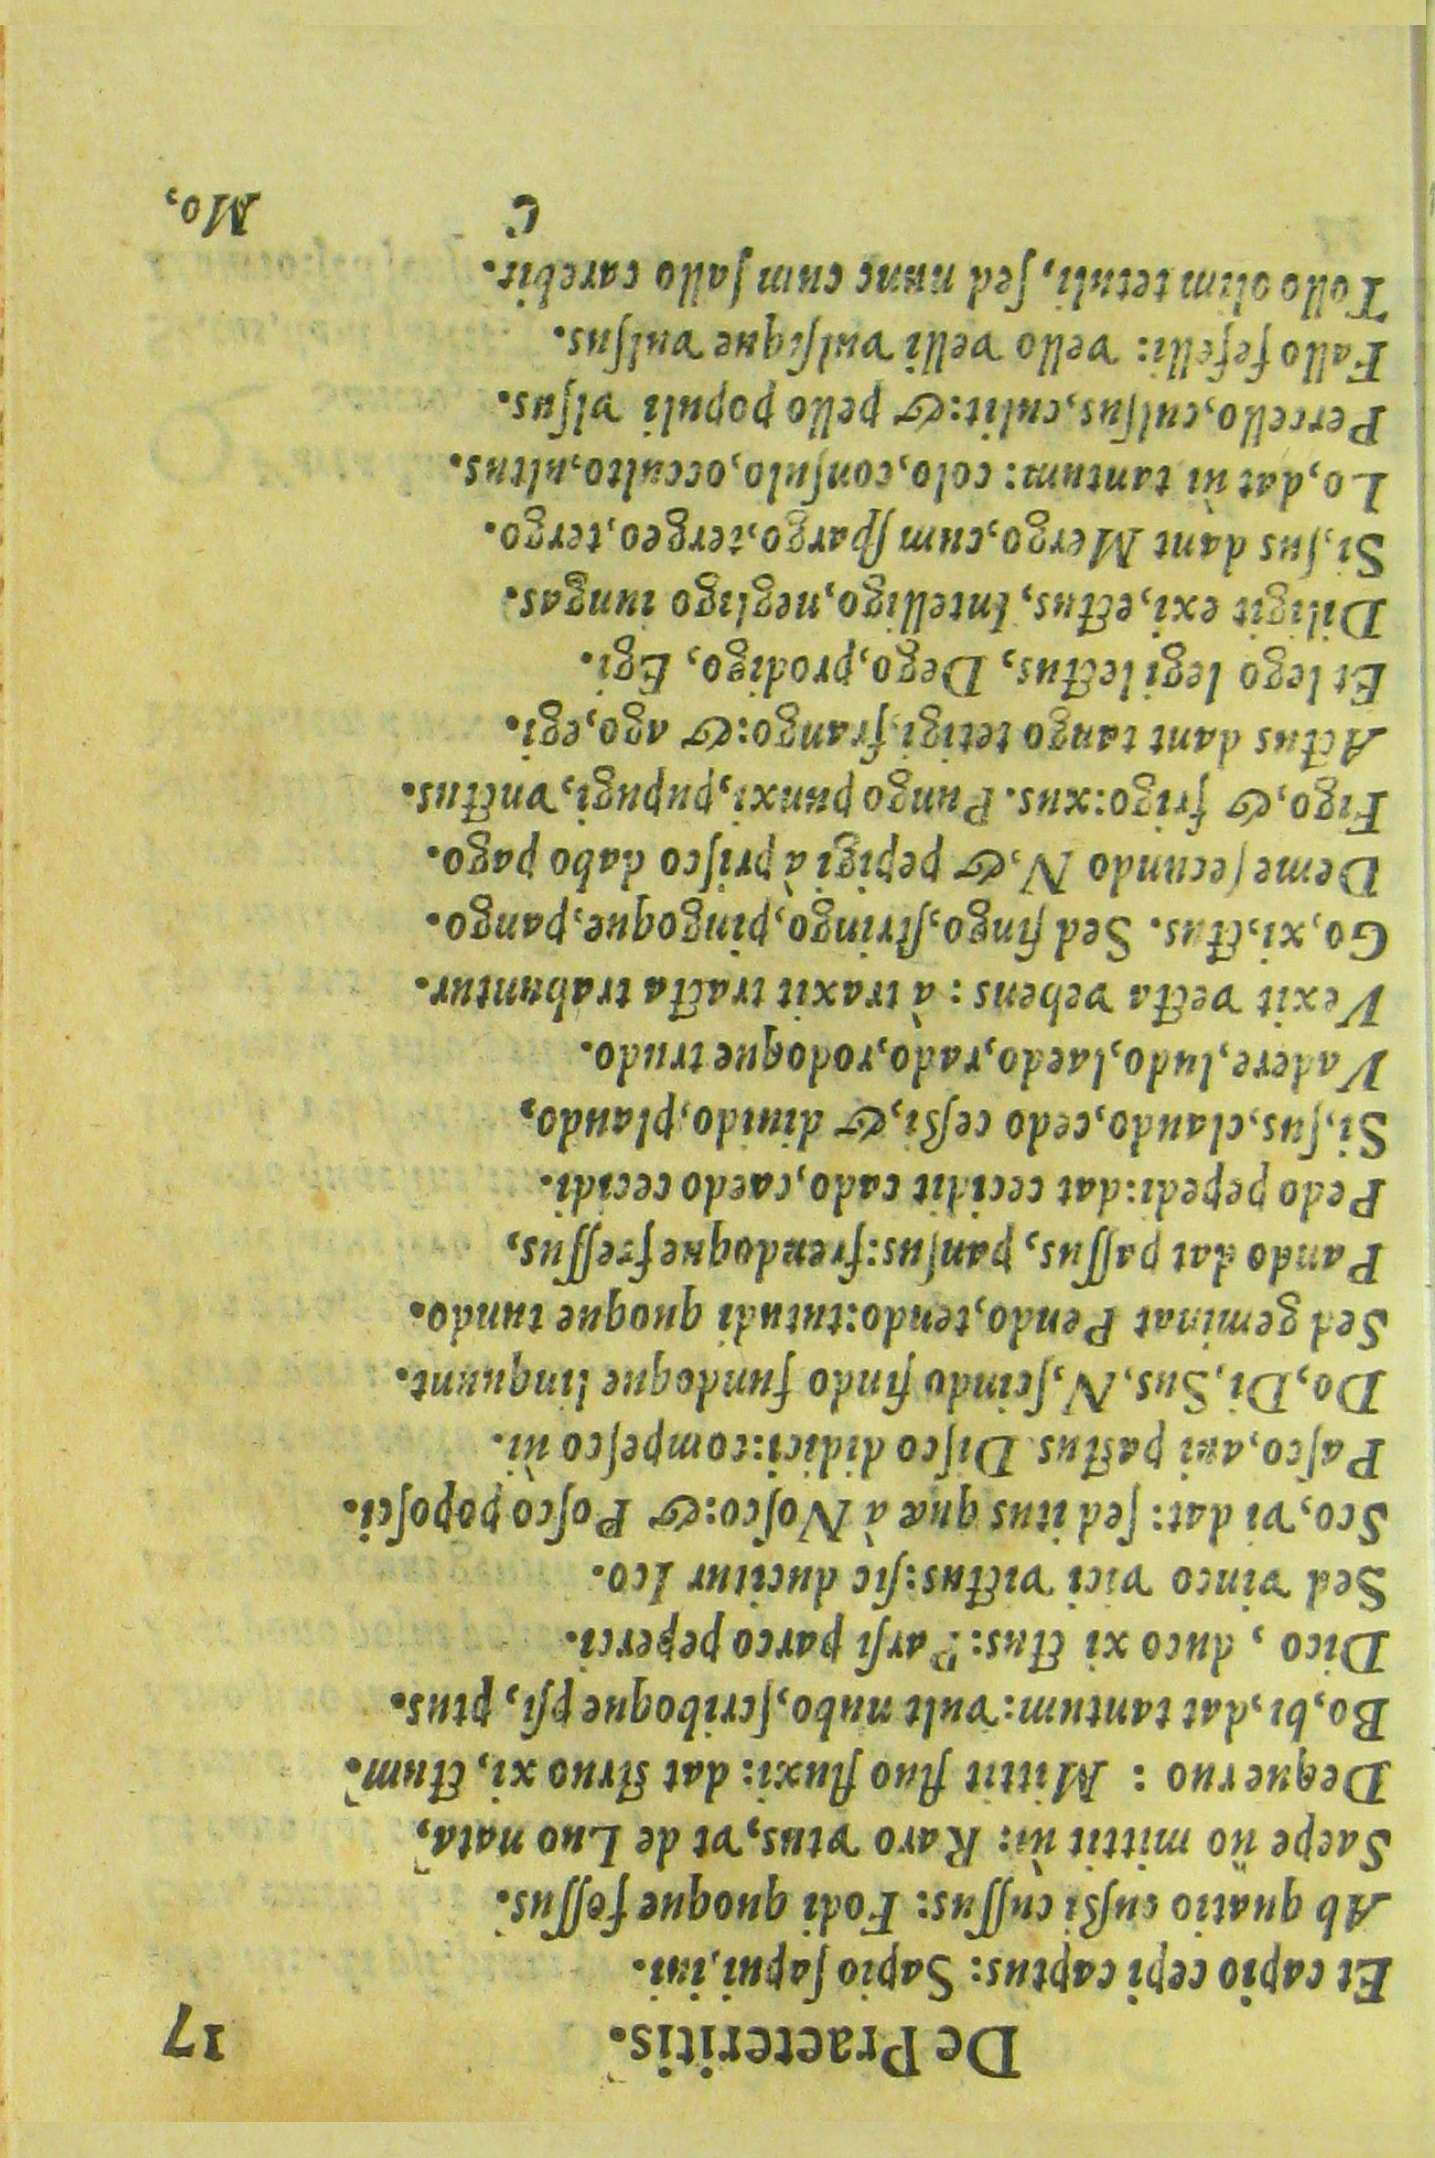 De Praeteritis. 17
Et capio cepi captus: Sapio ſapui, iui.
Ab quatio cußi cuſſus: Fodi quoque foſſus.
Saepe üo mittit ùi: Raro vtus, vt de Luo nata,
Deque ruo: Mittit fluo fluxi: dat struo xi, ctum.
Bo, bi, dat tantum: vult nubo, ſcriboque pſi, ptus.
Dico, duco xi ctus: Parſi parco peperci.
Sed vinco vici victus: ſic ducitur Ico.
Sco, vi dat: ſed itus quæ à Noſco: & Poſco popoſci.
Paſco, aui paſtus. Diſco didici: compeſco ùi.
Do, Di, Sus, N, ſcindo findo fundoque linquunt.
Sed geminat Pendo, tendo: tutudi quoque tundo.
Pando dat paſſus, panſus: frendoque freſſus,
Pedo pepedi: dat cecidit cado, caedo cecidi.
Si, ſus, claudo, cedo ceßi, & diuido, plaudo,
Vadere, ludo, laedo, rado, rodoque trudo.
Vexit vecta vehens: à traxit tracta trahuntur.
Go, xi, ctus. Sed fingo, ſtringo, pingoque, pango.
Deme ſecundo N, & pepigi à priſco dabo pago.
Figo, & frigo: xus. Pungo punxi, pupugi, vnctus.
Actus dant tango tetigi, frango: & ago, egi.
Et lego legi lectus, Dego, prodigo, Egi.
Diligit exi, ectus, Intelligo, negligo iungas.
Si, ſus dant Mergo, cum ſpargo, tergeo, tergo.
Lo, dat ùi tantum: colo, conſulo, occulto, ultus.
Percello, culſus, culit: & pello populi vlſus.
Fallo fefelli: vello velli vulſique vulſus.
Tollo olim tetuli, ſed nunc cum ſallo carebit.
C Mo,